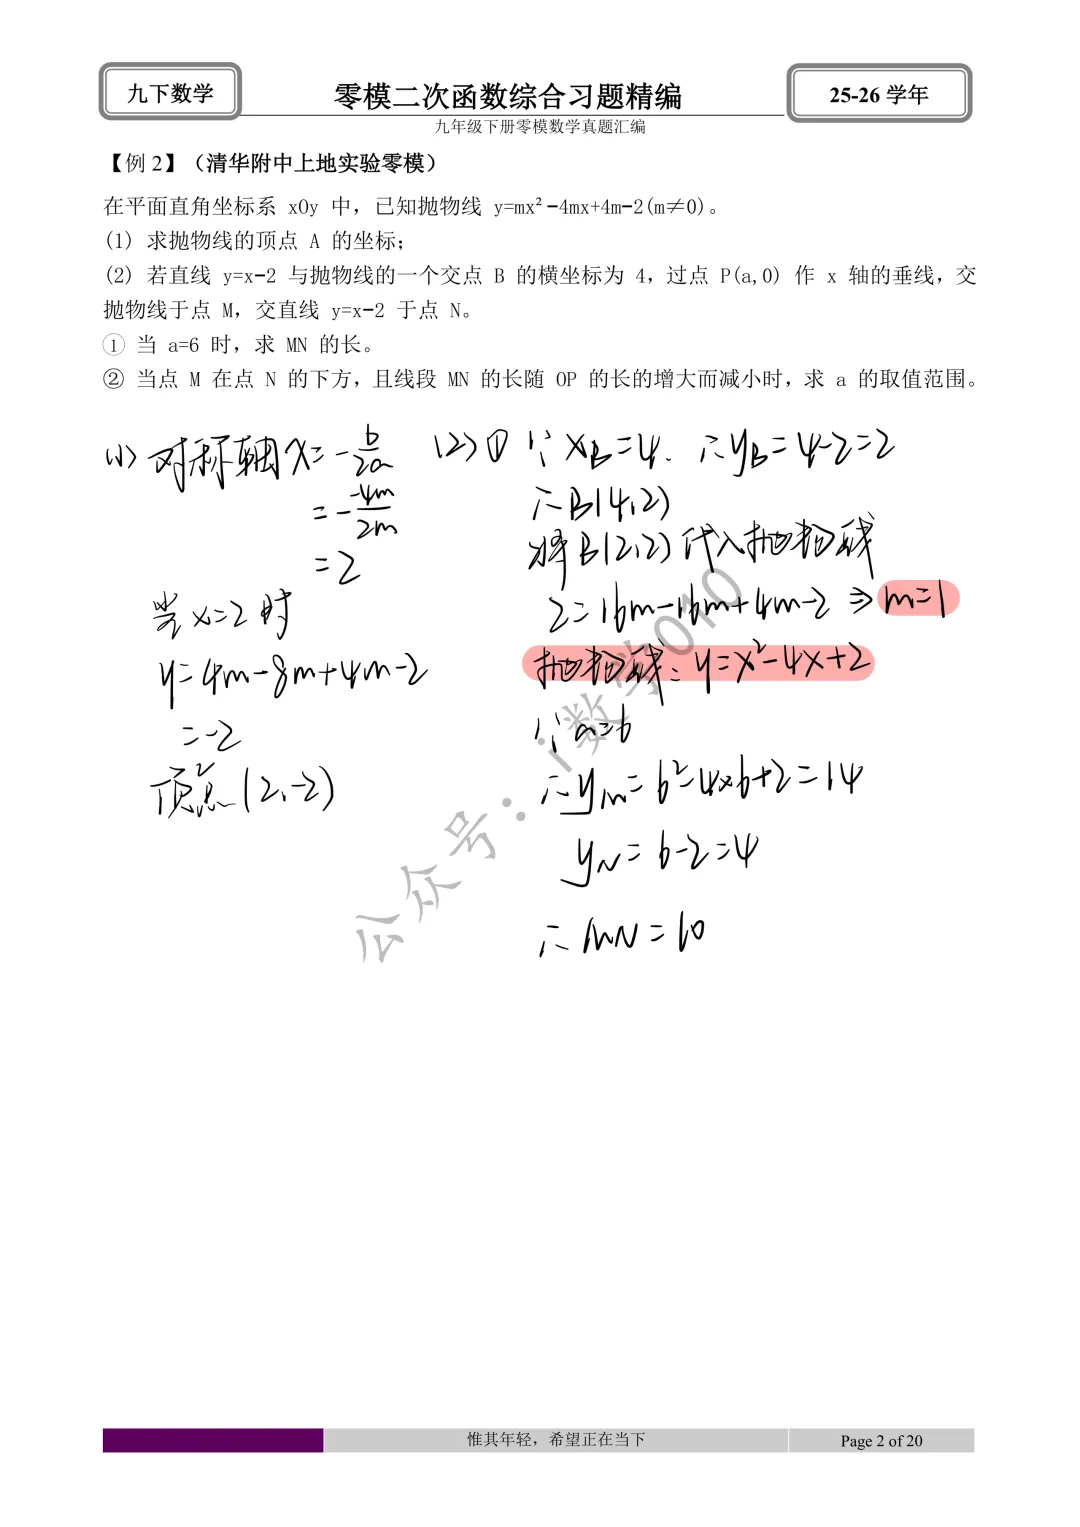 九下数学
零模二次函数综合习题精编
25-26 学年
九年级下册零模数学真题汇编
【例 2】（清华附中上地实验零模）
在平面直角坐标系 xOy 中，已知抛物线 y=mx²-4mx+4m-2(m≠0)。
(1) 求抛物线的顶点 A 的坐标;
(2) 若直线 y=x-2 与抛物线的一个交点 B 的横坐标为 4，过点 P(a,0) 作 x 轴的垂线，交
抛物线于点 M，交直线 y=x-2 于点 N。
① 当 a=6 时，求 MN 的长。
② 当点 M 在点 N 的下方，且线段 MN 的长随 OP 的长的增大而减小时，求 a 的取值范围。
(1) 对称轴 x=-b/2a
=-(-4m)/2m
=2
当 x=2 时
y=4m-8m+4m-2
=-2
顶点 (2,-2)
(2) ① ∵ xB=4. ∴ yB=4-2=2
∴ B(4,2)
将 B(2,2) 代入抛物线
2=16m-16m+4m-2 ⇒ m=1
抛物线: y=x²-4x+2
∵ a=6
∴ yM=6²-4×6+2=14
yN=6-2=4
∴ MN=10
公众号：i数学010
惟其年轻，希望正在当下
Page 2 of 20